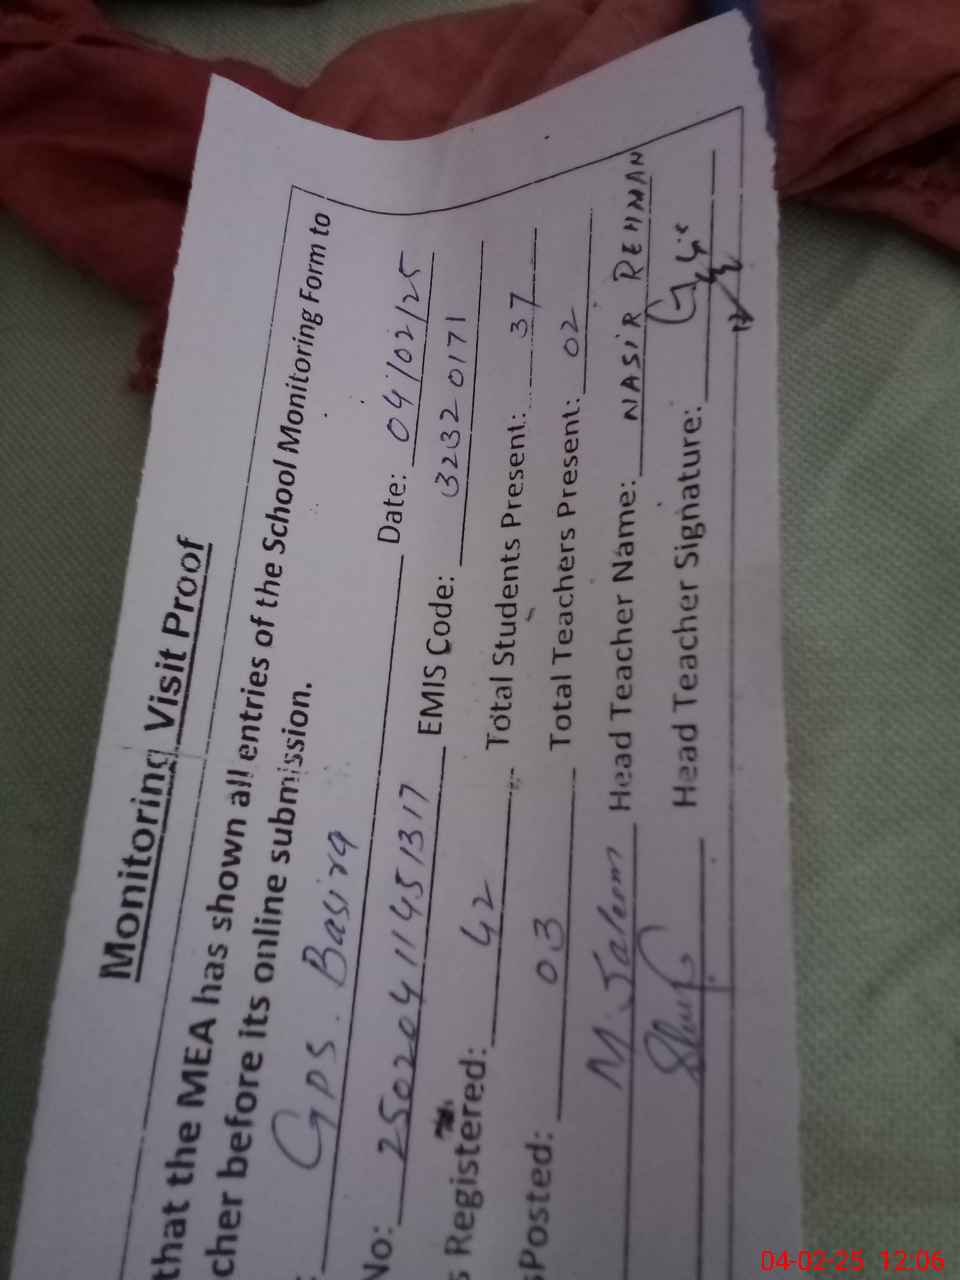 Monitoring Visit Proof
that the MEA has shown all entries of the School Monitoring Form to
cher before its online submission.
GPS. Basira Date: 04/02/25
No: 25020411451317 EMIS Code: 32320171
s Registered: 42 Total Students Present: 37
sPosted: 03 Total Teachers Present: 02
M. Saleem Head Teacher Name: NASIR REHMAN
Head Teacher Signature:
04-02-25 12:06